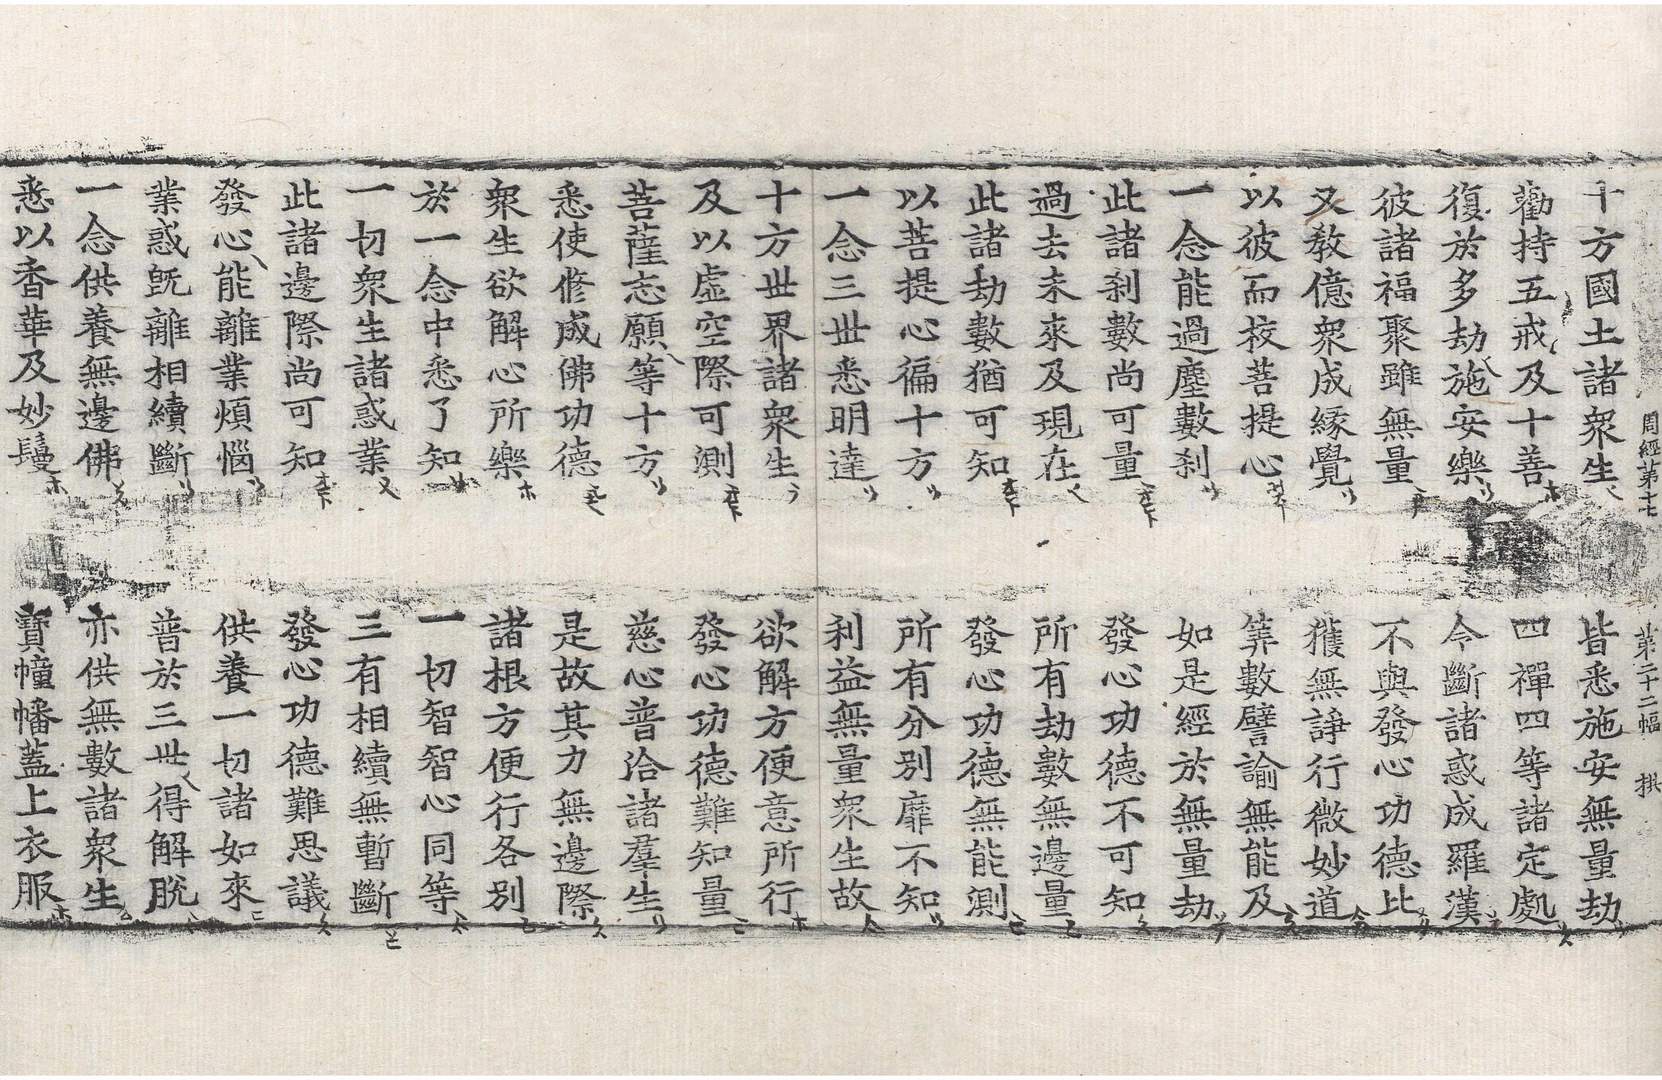 周經第十七 第二十二幅
十方國土諸衆生 皆悉施安無量劫
勸持五戒及十善 四禪四等諸定處
復於多劫施安樂 令斷諸惑成羅漢
彼諸福聚雖無量 不與發心功德比
又敎億衆成緣覺 獲無諍行微妙道
以彼而校菩提心 筭數譬諭無能及
一念能過塵數刹 如是經於無量劫
此諸刹數尚可量 發心功德不可知
過去未來及現在 所有劫數無邊量
此諸劫數猶可知 發心功德無能測
以菩提心徧十方 所有分別靡不知
一念三世悉明達 利益無量衆生故
十方世界諸衆生 欲解方便意所行
及以虛空際可測 發心功德難知量
菩薩志願等十方 慈心普洽諸羣生
悉使修成佛功德 是故其力無邊際
衆生欲解心所樂 諸根方便行各別
於一念中悉了知 一切智智心同等
一切衆生諸惑業 三有相續無暫斷
此諸邊際尚可知 發心功德難思議
發心能離業煩惱 供養一切諸如來
業惑旣離相續斷 普於三世得解脫
一念供養無邊佛 亦供無數諸衆生
悉以香華及妙鬘 寶幢幡蓋上衣服